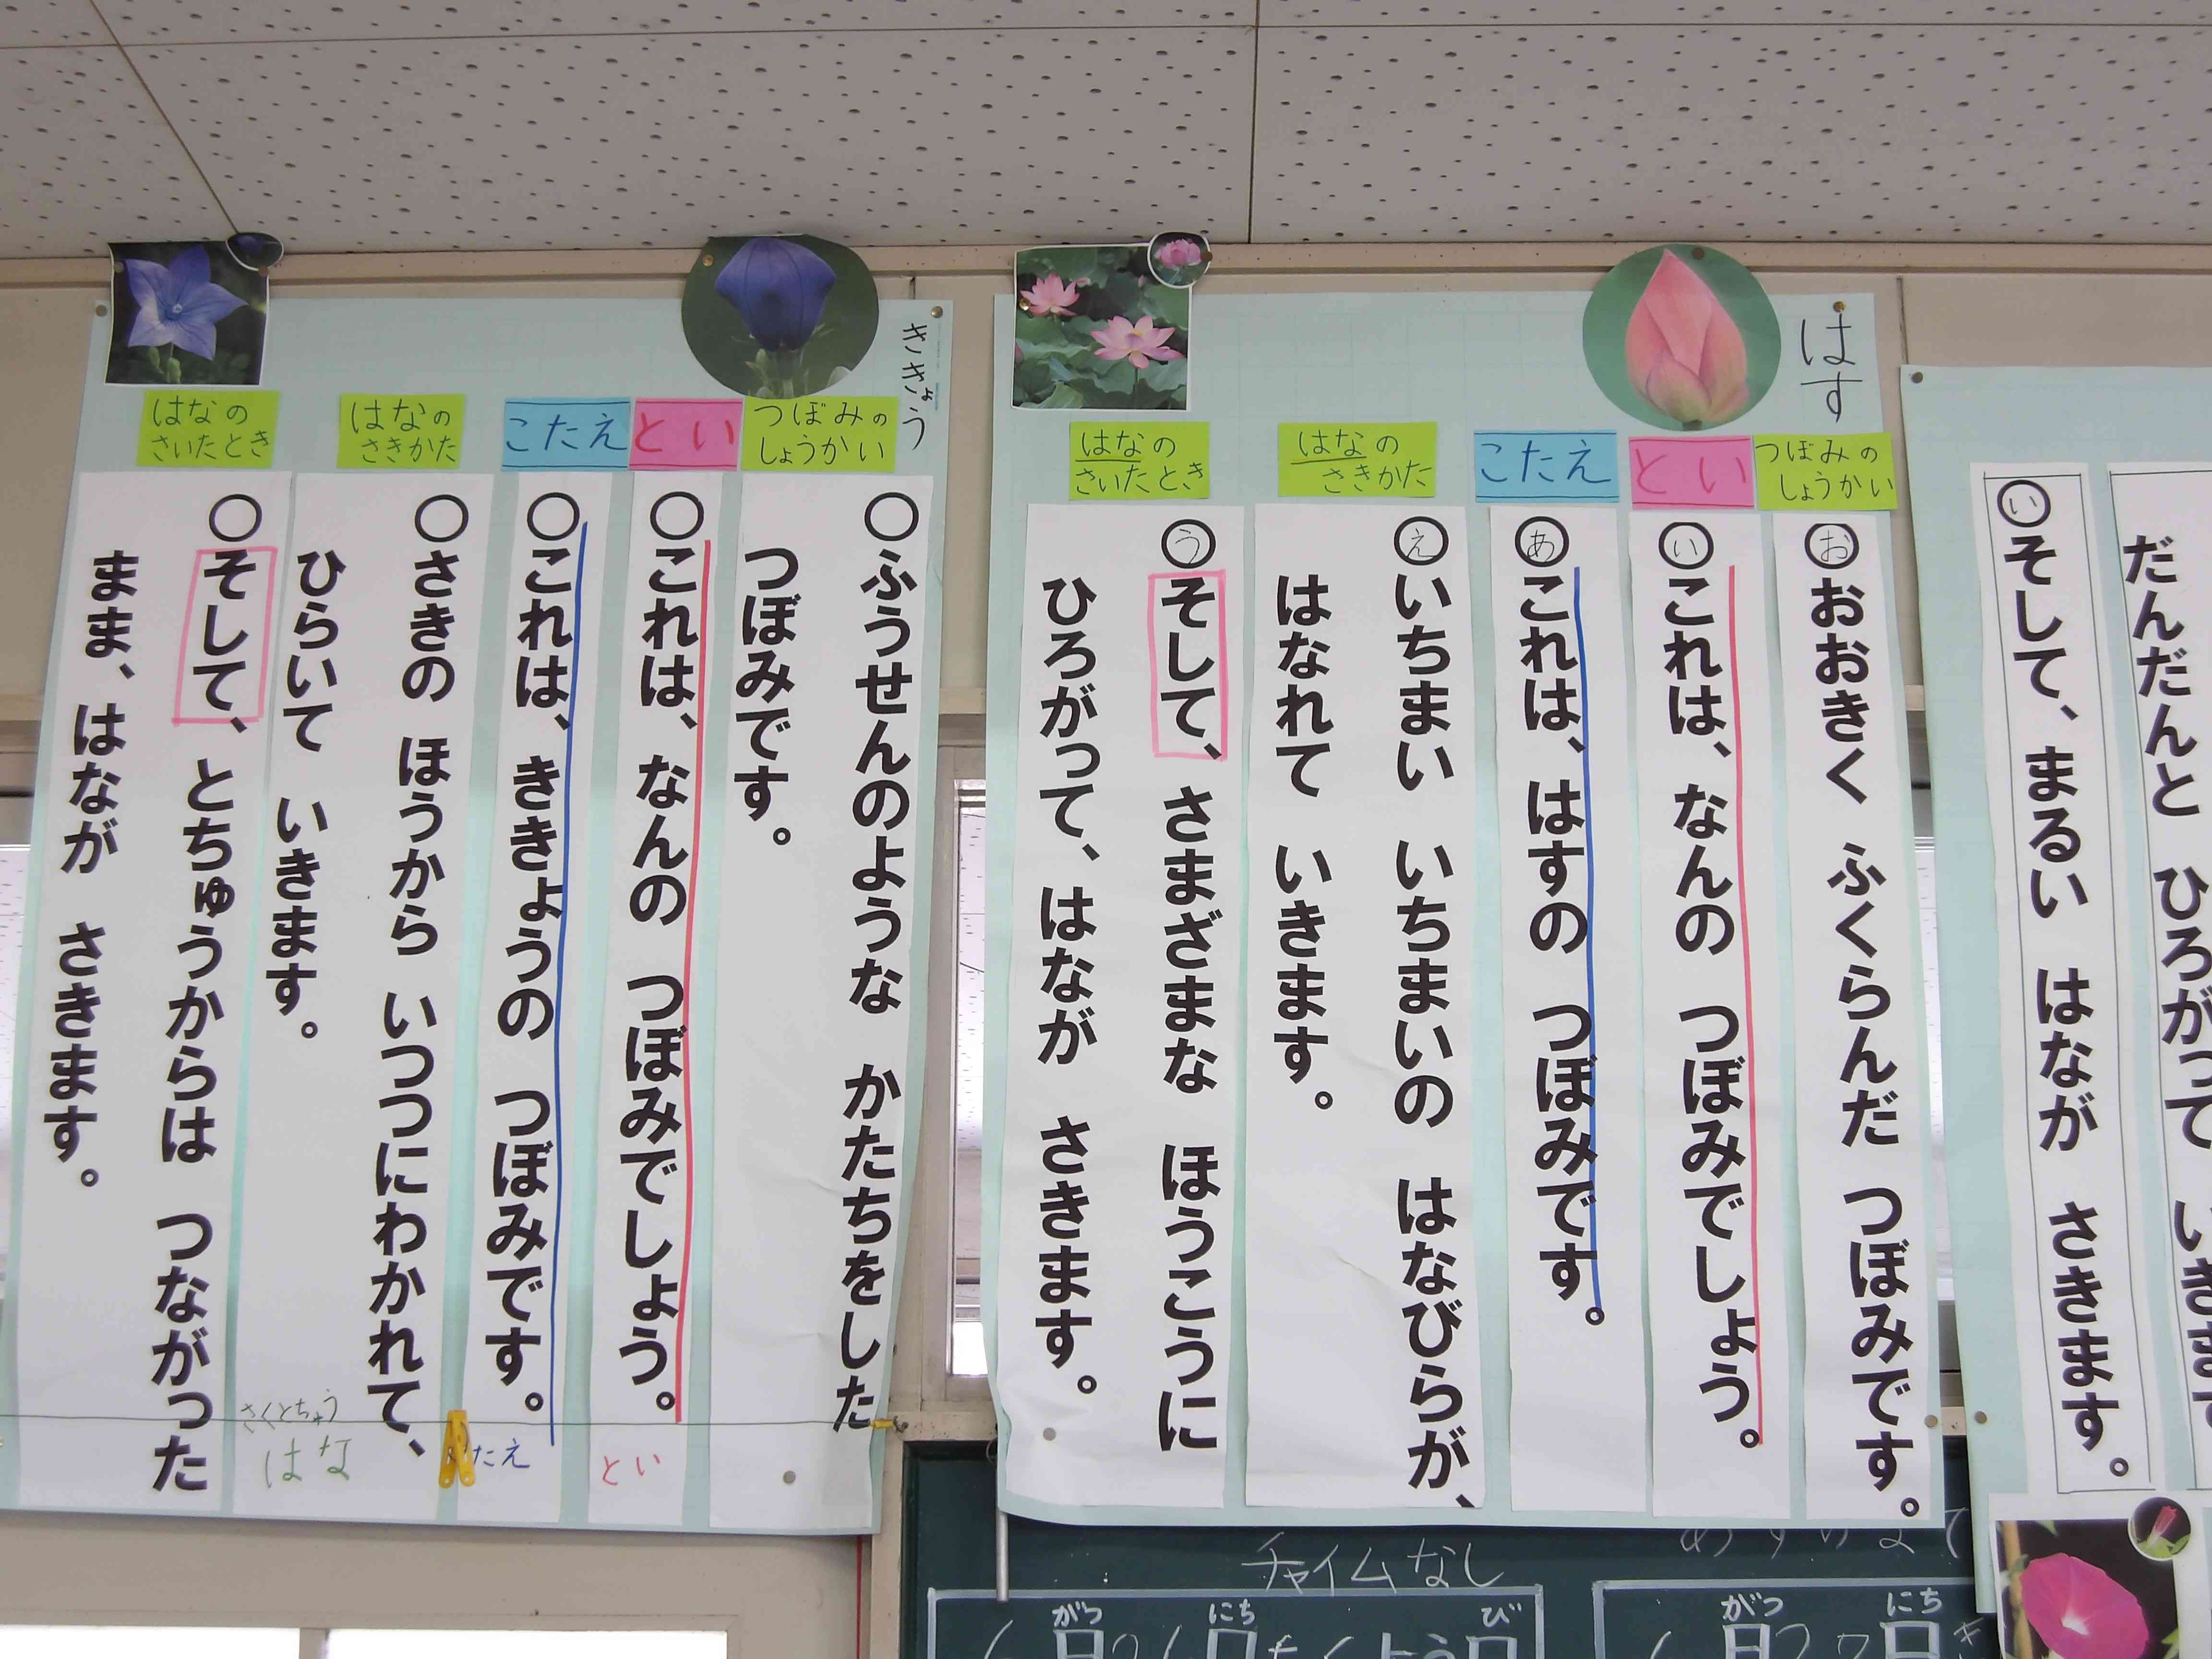 だんだんと ひろがって
い そして、まるい はなが さきます。
はす
つぼみの
しょうかい
お おおきく ふくらんだ つぼみです。
とい
い これは、なんの つぼみでしょう。
こたえ
あ これは、はすの つぼみです。
はなの
さきかた
え いちまい いちまいの はなびらが、
はなれて いきます。
はなの
さいたとき
う そして、さまざまな ほうこうに
ひろがって、はなが さきます。
ききょう
つぼみの
しょうかい
○ふうせんのような かたちをした
つぼみです。
とい
○これは、なんの つぼみでしょう。
とい
こたえ
○これは、ききょうの つぼみです。
たえ
はなの
さきかた
○さきの ほうから いつつにわかれて、
ひらいて いきます。
さくとちゅう
はな
はなの
さいたとき
○そして、とちゅうからは つながった
まま、はなが さきます。
チャイムなし
がつ にち
がつ にち び